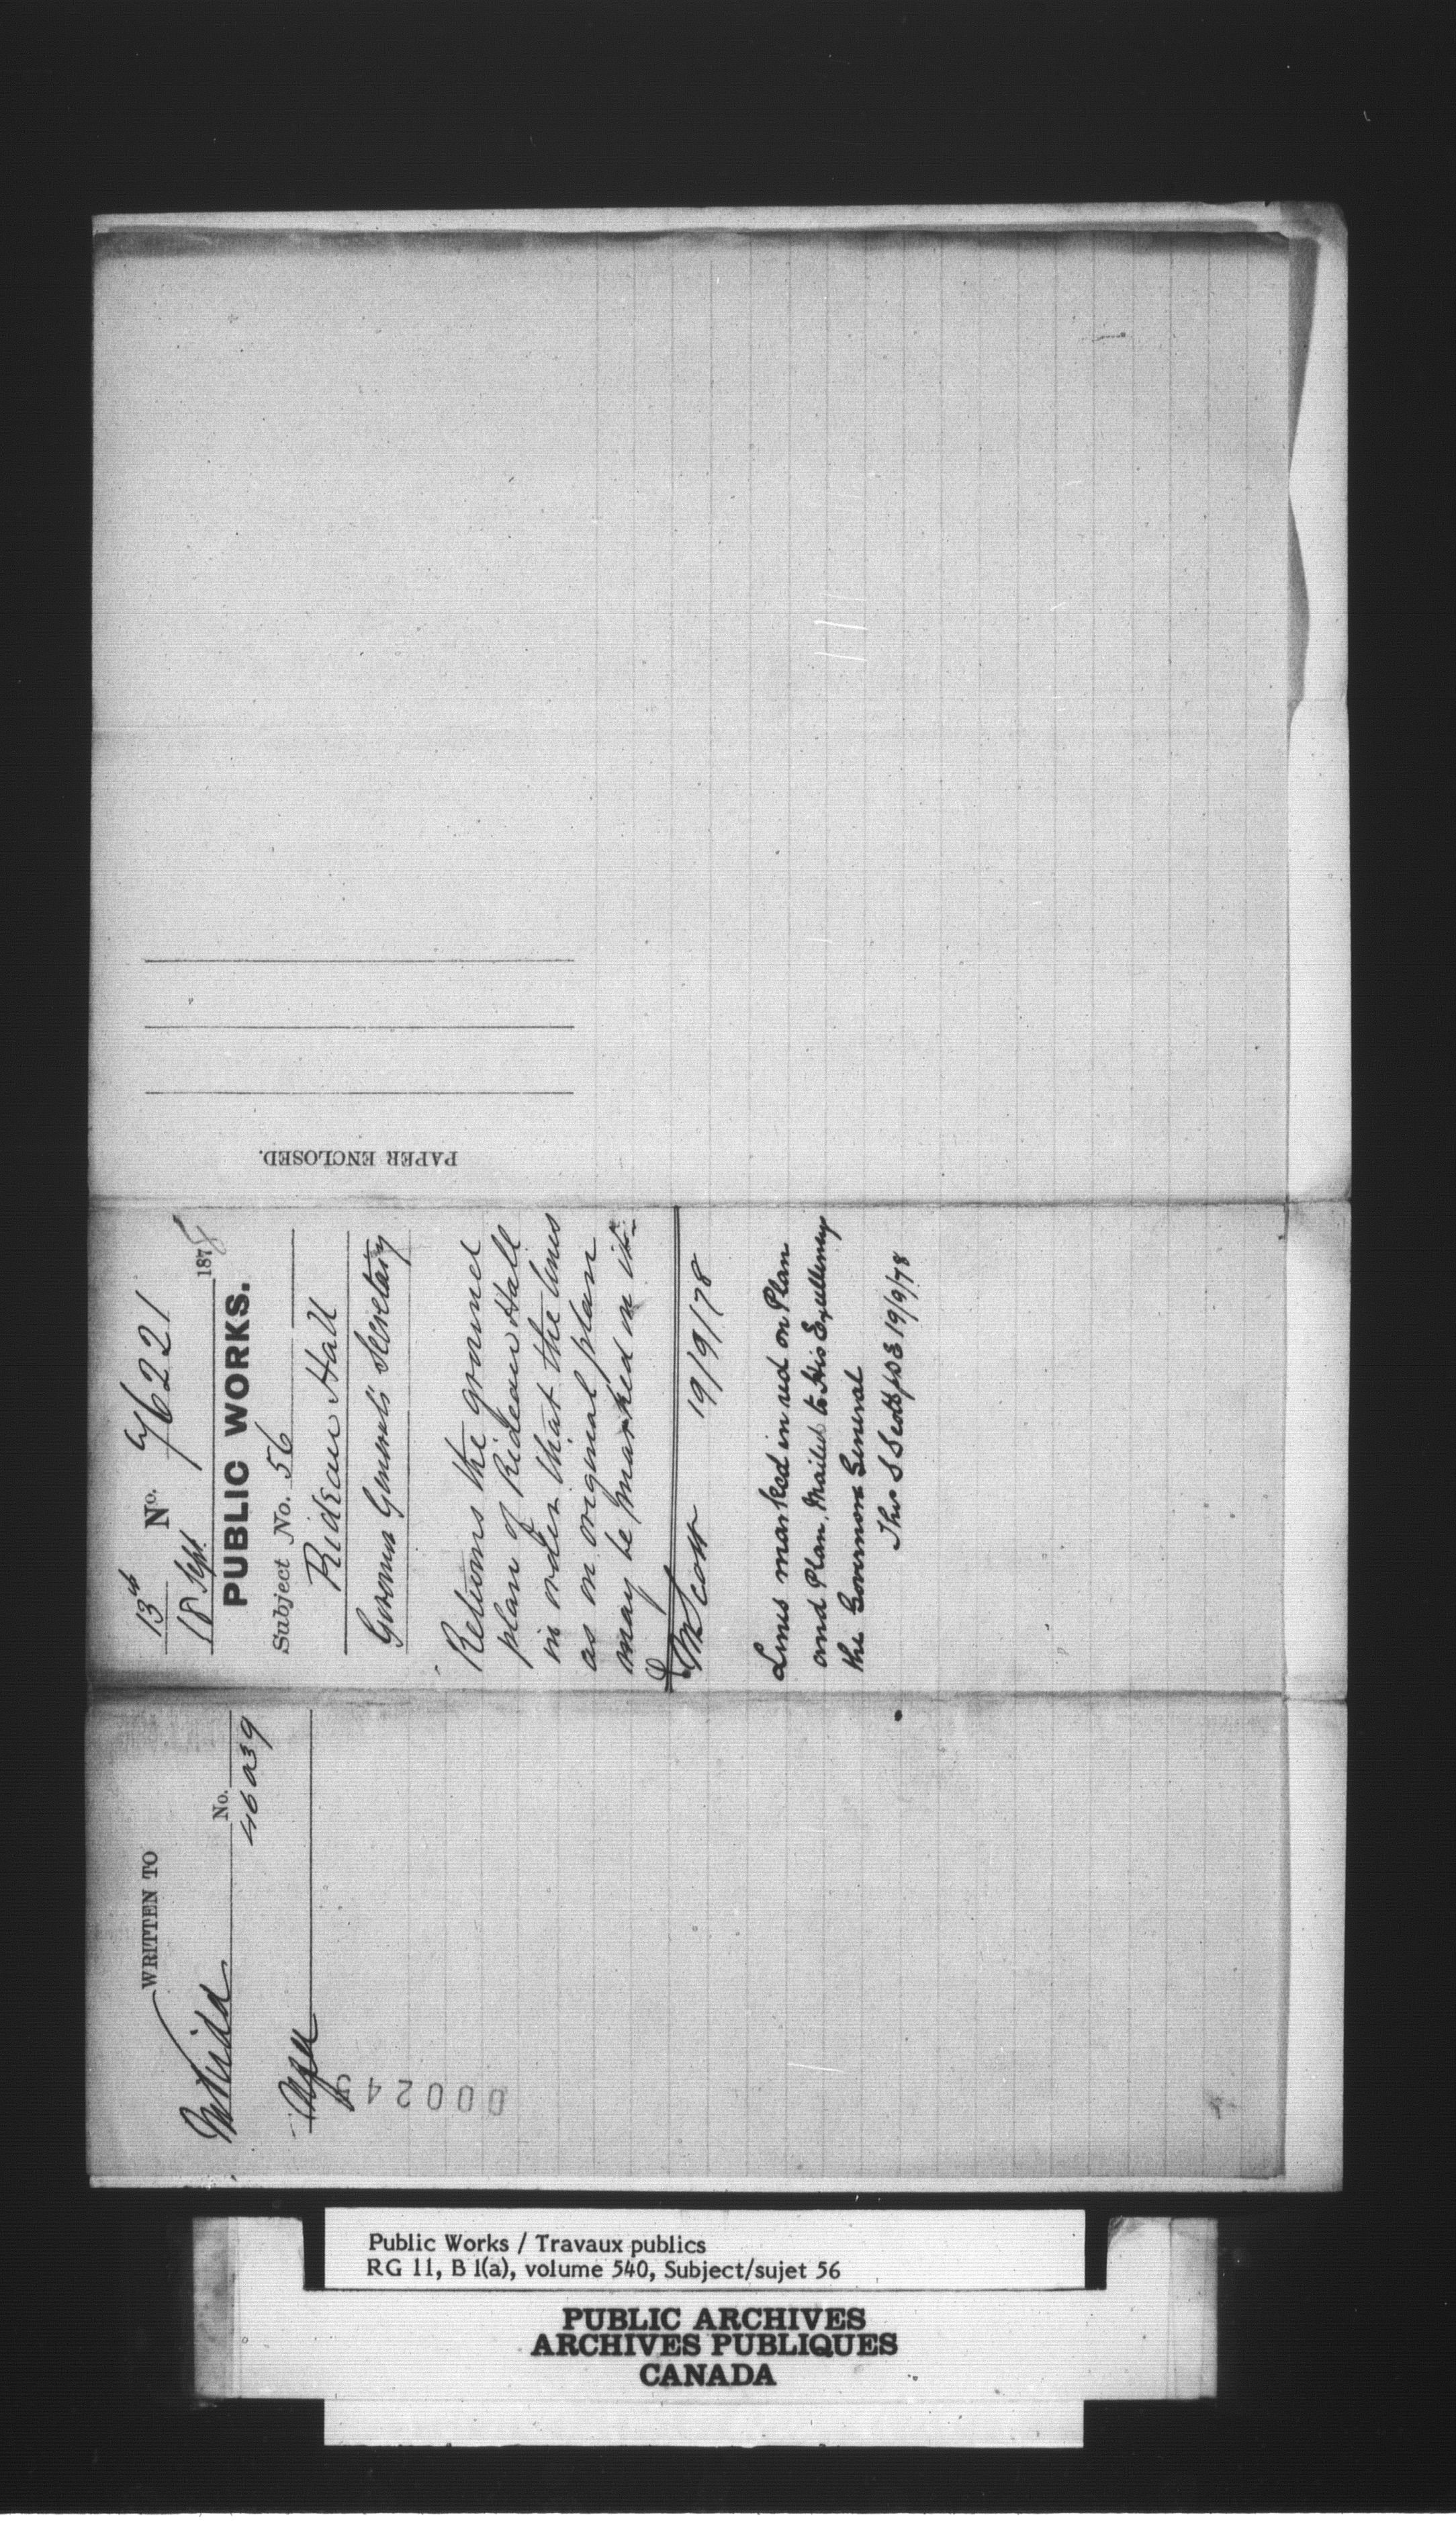 WRITTEN TO
No.
46039
000245
13th
No. 76221
18 Sept. 1878
PUBLIC WORKS.
Subject No. 56
Rideau Hall
Governor General's Secretary
Returns the ground
plan of Rideau Hall
in order that the lines
as on original plan
may be marked on it
Mr Scott 19/9/78
Lines marked in red on Plan
and Plan Mailed to His Excellency
the Governor General
Thos S Scott 19/9/78
PAPER ENCLOSED.
Public Works / Travaux publics
RG 11, B 1(a), volume 540, Subject/sujet 56
PUBLIC ARCHIVES
ARCHIVES PUBLIQUES
CANADA